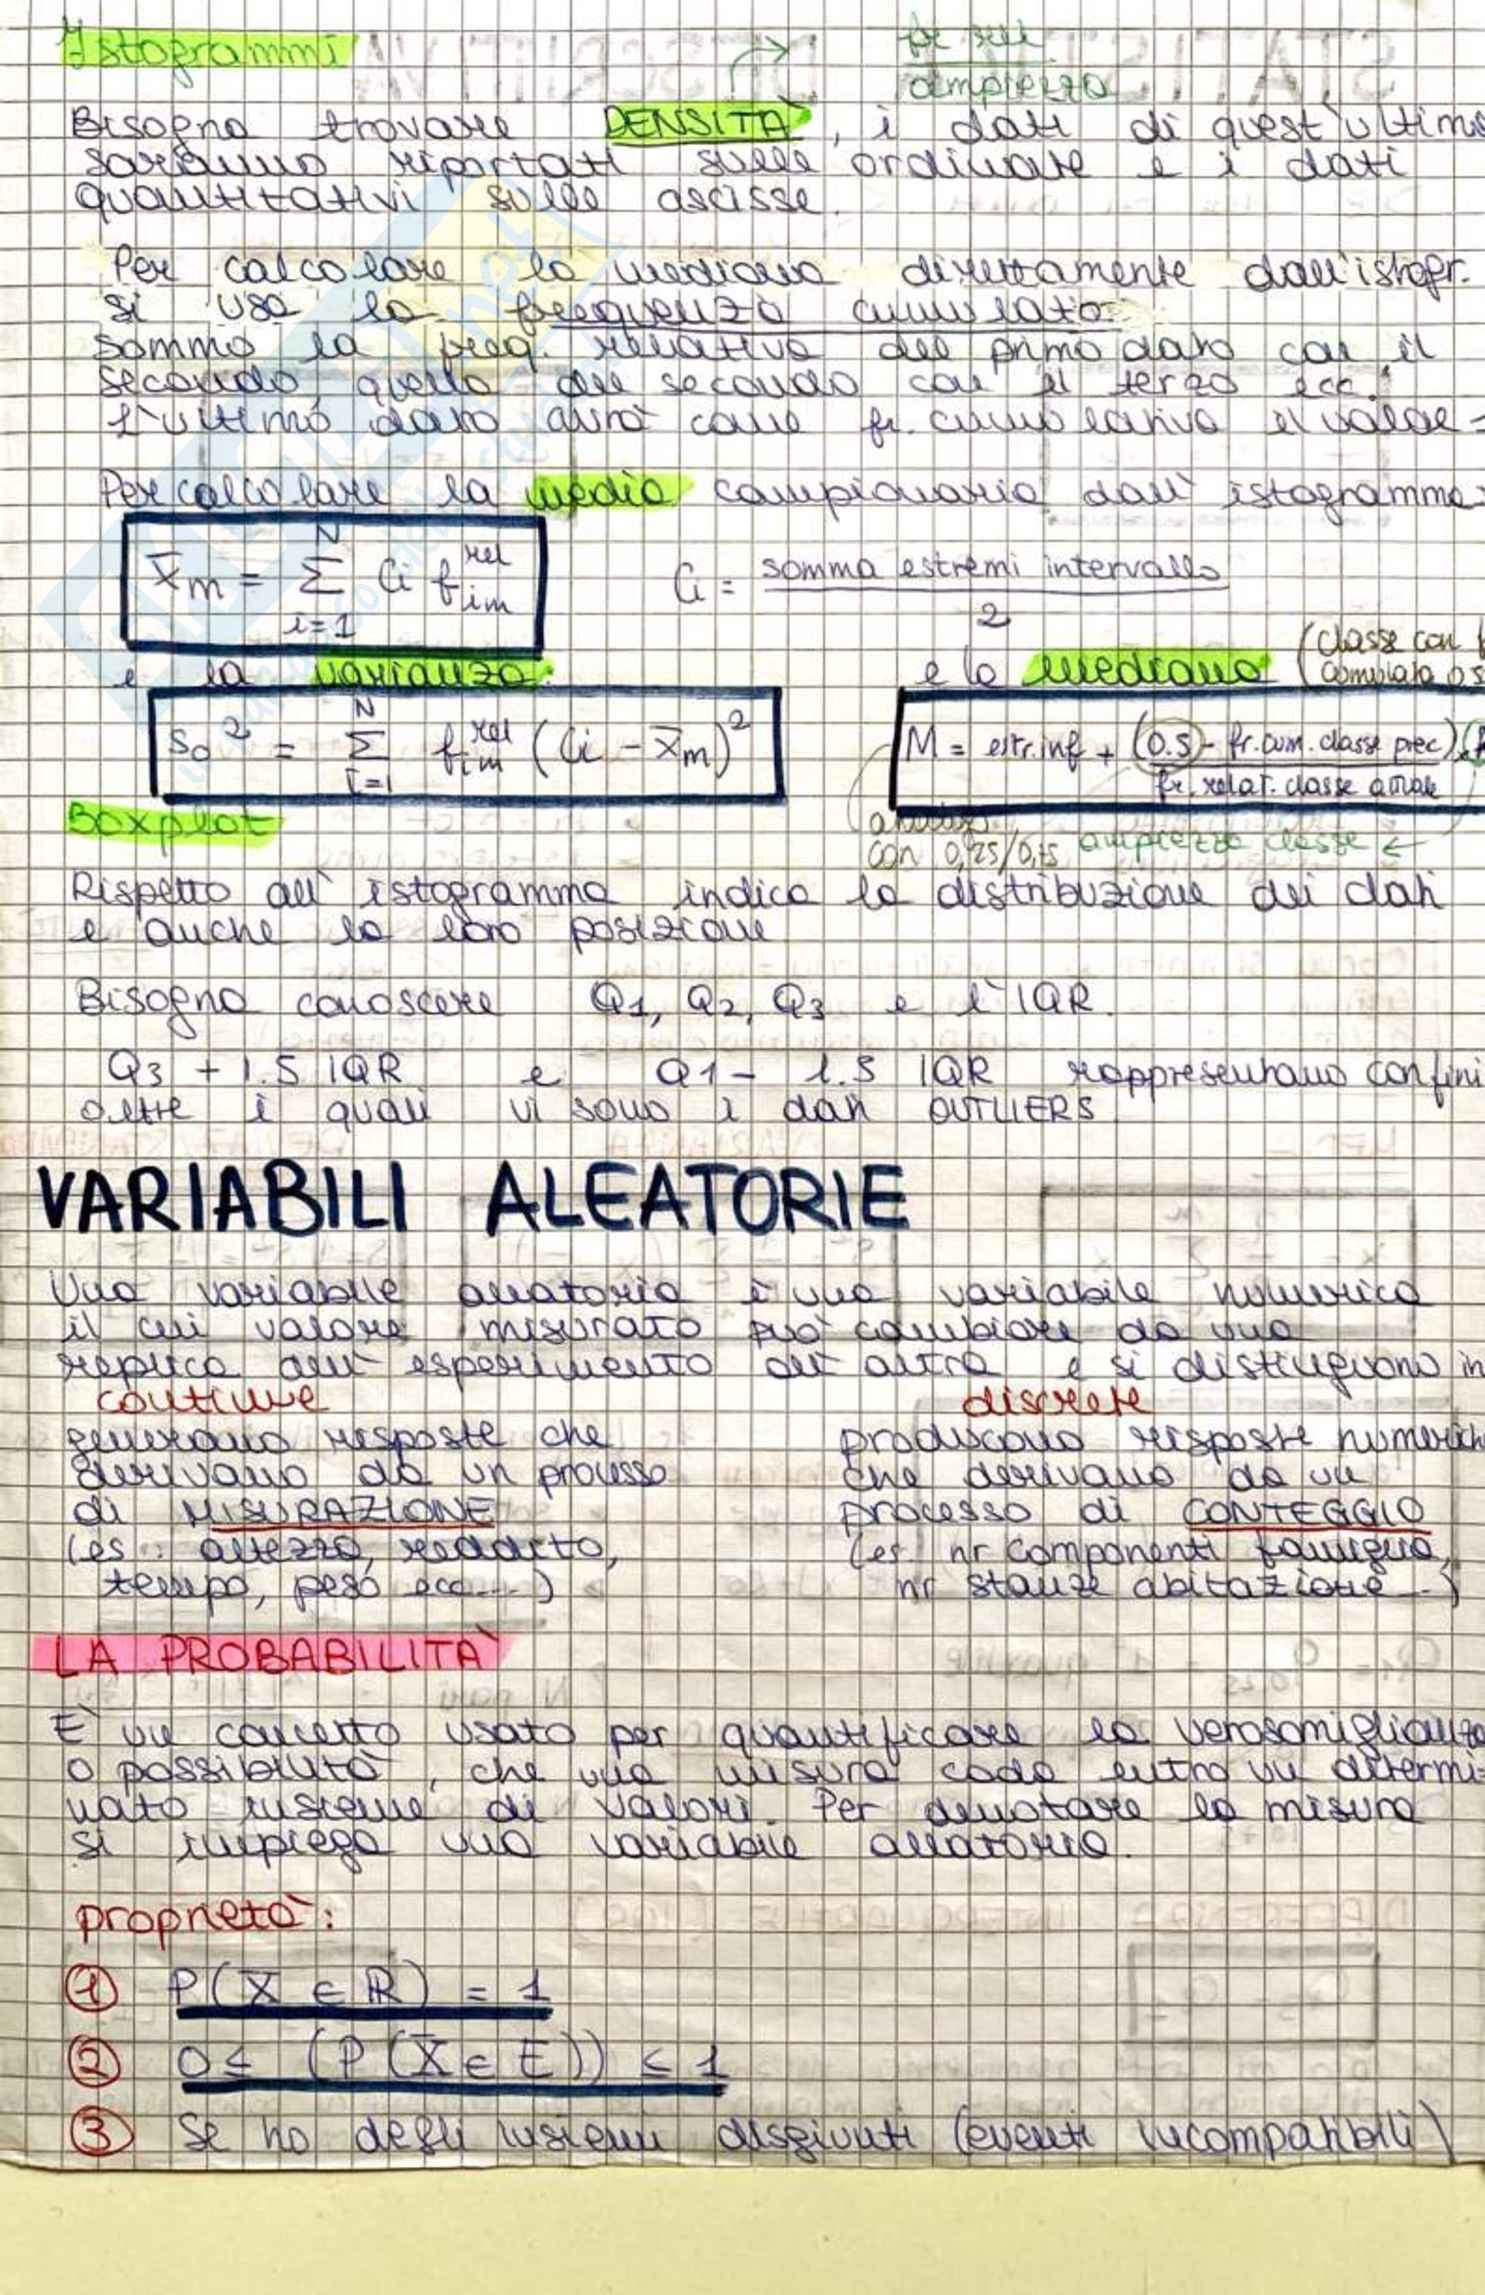 Istogrammi
fr. rel
ampiezza
Bisogna trovare DENSITÀ, i dati di quest'ultima
saranno riportati sulle ordinate e i dati
quantitativi sulle ascisse.
Per calcolare la mediana direttamente dall'istogr.
si usa la frequenza cumulata:
sommo la freq. relativa del primo dato con il
secondo, quella del secondo con il terzo ecc.
L'ultimo dato avrà come fr. cumulativa il valore =
Per calcolare la media campionaria dall'istogramma:
x̄m = Σ i=1 N Ci fim rel
Ci = somma estremi intervallo / 2
e la varianza:
e la mediana (classe con f
cumulata 0.5
s0² = Σ i=1 N fim rel (Ci - x̄m)²
M = estr.inf + (0.5 - fr.cum.classe prec)
fr. relat. classe attuale
Boxplot
con 0,25/0,75
ampiezza classe ←
Rispetto all'istogramma indica la distribuzione dei dati
e anche la loro posizione
Bisogna conoscere Q1, Q2, Q3 e l'IQR.
Q3 + 1.5 IQR e Q1 - 1.5 IQR rappresentano confini
oltre i quali vi sono i dati OUTLIERS
VARIABILI ALEATORIE
Una variabile aleatoria è una variabile numerica
il cui valore misurato può cambiare da una
replica dell'esperimento all'altra e si distinguono in
continue
discrete
generano risposte che
derivano da un processo
di MISURAZIONE
(es: altezza, reddito,
tempo, peso ecc...)
producono risposte numerich
che derivano da un
processo di CONTEGGIO
(es. nr componenti famiglia,
nr stanze abitazione...)
LA PROBABILITÀ
È un concetto usato per quantificare la verosomiglianza
o possibilità, che una misura cada entro un determi-
nato insieme di valori. Per denotare la misura
si impiega una variabile aleatoria.
proprietà:
① P(X ∈ ℝ) = 1
② 0 ≤ (P(X ∈ E)) ≤ 1
③ Se ho degli insiemi disgiunti (eventi incompatibili)